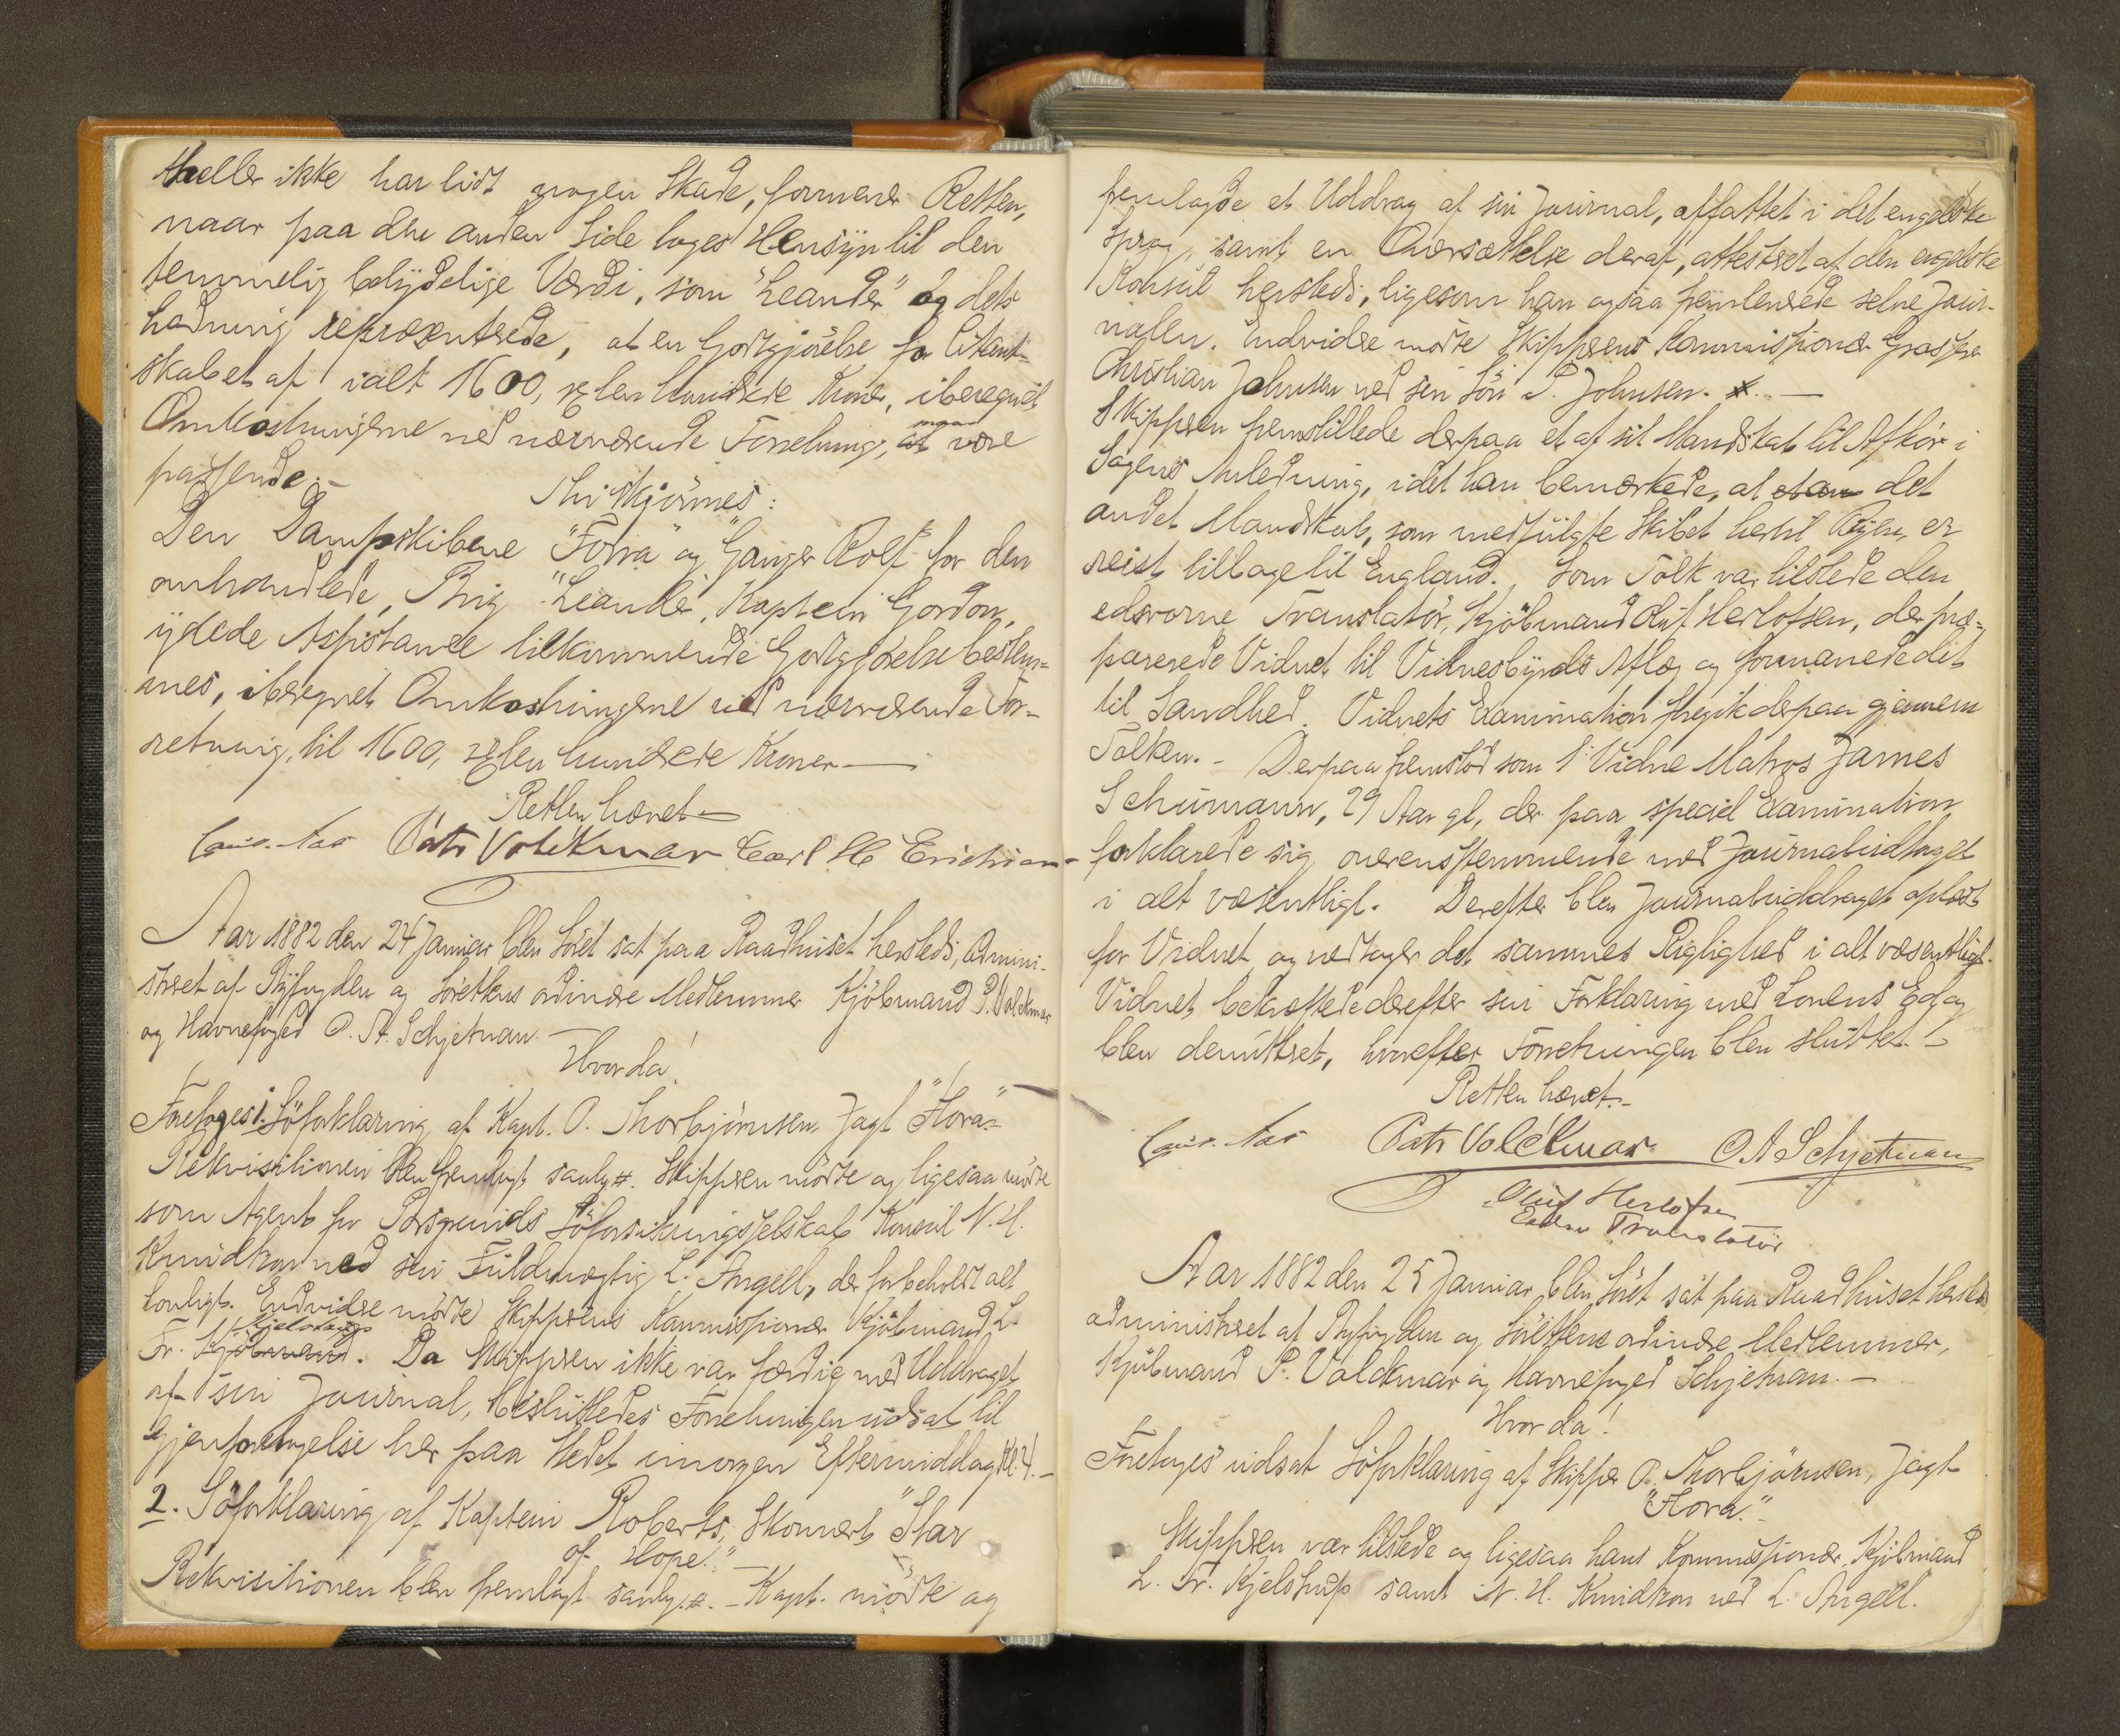 heller ikke har lidt nogen Skade, formener Retten,
naar paa den anden Side tages Hensyn til den
temmelig betydelige Værdi, som "Leander" og dets
Ladning repræsenterede, at en Godtgjörelse for
skabet af ialt 1600, sexten hundrede Kroner, iberegnet
Omkostningerne ved nærværende Forretning, maa være
passende.-
Thi skjönnes:
Den Dampskibene "Forra" og "Ganger Rolf" for den
omhandlede, Brig "Leander", Kaptein Gordon,
ydede Assistance tilkommende Godtgjörelse bestem-
mes, iberegnet Omkostningerne ved nærværende For-
retning, til 1600, sexten hundrede Kroner —
Retten hævet
Chris. Aas Patr Volckmar Carl H Erichsen
Aar 1882 den 24 Januar blev Söret sat paa Raadhuset hersteds, admini-
streret af Byfogden og Sörettens ordinære Medlemmer Kjöbmand P. Volckmar
og Havnefoged O. A. Schjetnan. —
Hvorda!
Foretoges 1. Söforklaring af Kapt. O. Thorbjörnsen, Jagt "Flora"-
Rekvisitionen blev fremlagt saalyd. Skipperen mödte og ligesaa mödte
som Agent for Porsgrunds Söforsikringsselskab Konsul N. H.
Knudtzon ved sin Fuldmægtig L. Angell, der forbeholdt alt
lovligt. Endvidere mödte Skipperens Kommissionær Kjöbmand L.
Fr. Kjelstrup. Da Skipperen ikke var færdig med Uddraget
af sin Journal, besluttedes Forretningen udsat til
Gjenforetagelse her paa Stedet imorgen Eftermiddag Kl. 4. —
2. Söforklaring af Kaptein Roberts, Skonnert "Star
of Hope". —
Rekvisitionen blev fremlagt saalyd. - Kapt. mödte og
fremlagde et Uddrag af sin Journal, affattet i det engelske
Sprog, samt en Oversættelse deraf, attesteret af den engelske
Konsul hersteds, ligesom han ogsaa fremleverede selve Jour-
nalen. Endvidere mödte Skipperens Kommissionær Grosserer
Christian Johnsen ved sin Sön P. Johnsen. —
Skipperen fremstillede derpaa et af sit Mandskab til Afhör i
Sagens Anledning, idet han bemærkede, at det
andet Mandskab, som medfulgte Skibet hertil Byen, er
reist tilbage til England. Som Tolk var tilstede den
edsvorne Translatör, Kjöbmand Oluf Herlofsen, der præ-
parerede Vidnet til Vidnesbyrds Aflæg og formanede det
til Sandhed. Vidnets Examination foregik derpaa gjennem
Tolken. - Derpaa fremstod som 1. Vidne Matros James
Schumann, 29 Aar gl, der paa speciel Examination
forklarede sig overensstemmende med Journaludtoget
i alt væsentligt. Derefter blev Journaluddraget oplæst
for Vidnet og vedtoger det sammes Rigtighed i alt væsentligt.
Vidnet bekræftede derefter sin Forklaring med Lovens Ed og
blev demitteret, hvorefter Forretningen blev sluttet. -
Retten hævet. -
Chris. Aas Patr Volckmar O A Schjetnan
Oluf Herlofsen
Edsv Translatör
Aar 1882 den 25 Januar blev Söret sat paa Raadhuset hersteds
administreret af Byfogden og Sörettens ordinære Medlemmer,
Kjöbmand P. Volckmar og Havnefoged Schjetnan. —
Hvorda!
Foretoges udsat Söforklaring af Skipper O. Thorbjörnsen, Jagt
"Flora." -
Skipperen var tilstede og ligesaa hans Kommissionær, Kjöbmand
L. Fr. Kjelstrup samt N. H. Knudtzon ved L. Angell.